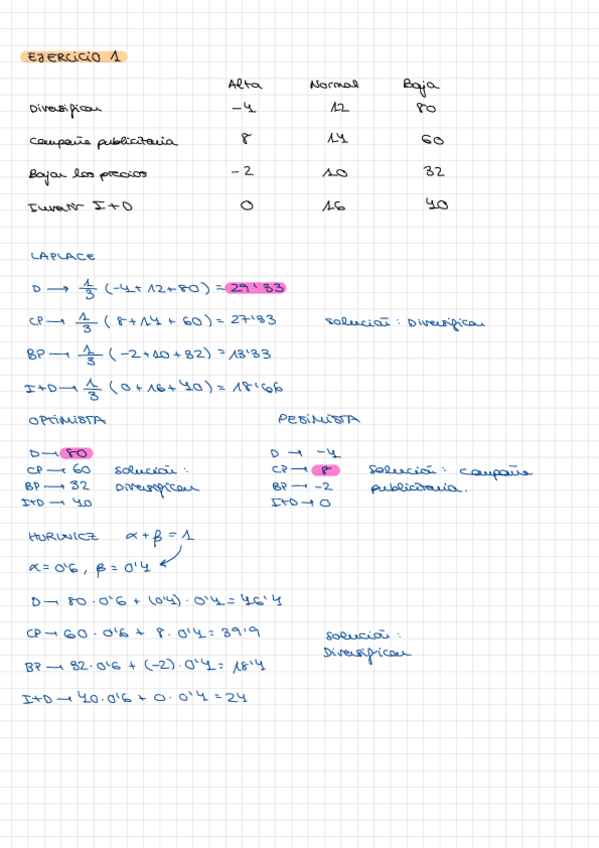 EJERCICIO 1
Alta Normal Baja
Diversificar -4 12 80
Campaña publicitaria 8 14 60
Bajar los precios -2 10 32
Invertir I+D 0 16 40
LAPLACE
D → 1/3 (-4+12+80) = 29'33
CP → 1/3 (8+14+60) = 27'33 Solución: Diversificar
BP → 1/3 (-2+10+32) = 13'33
I+D → 1/3 (0+16+40) = 18'66
OPTIMISTA PESIMISTA
D → 80 D → -4
CP → 60 Solución: CP → 8 Solución: Campaña
BP → 32 Diversificar BP → -2 publicitaria.
I+D → 40 I+D → 0
HURWICZ α + β = 1
α = 0'6, β = 0'4
D → 80 · 0'6 + (0'4) · 0'4 = 46'4
CP → 60 · 0'6 + 8 · 0'4 = 39'9 Solución:
Diversificar
BP → 32 · 0'6 + (-2) · 0'4 = 18'4
I+D → 40 · 0'6 + 0 · 0'4 = 24